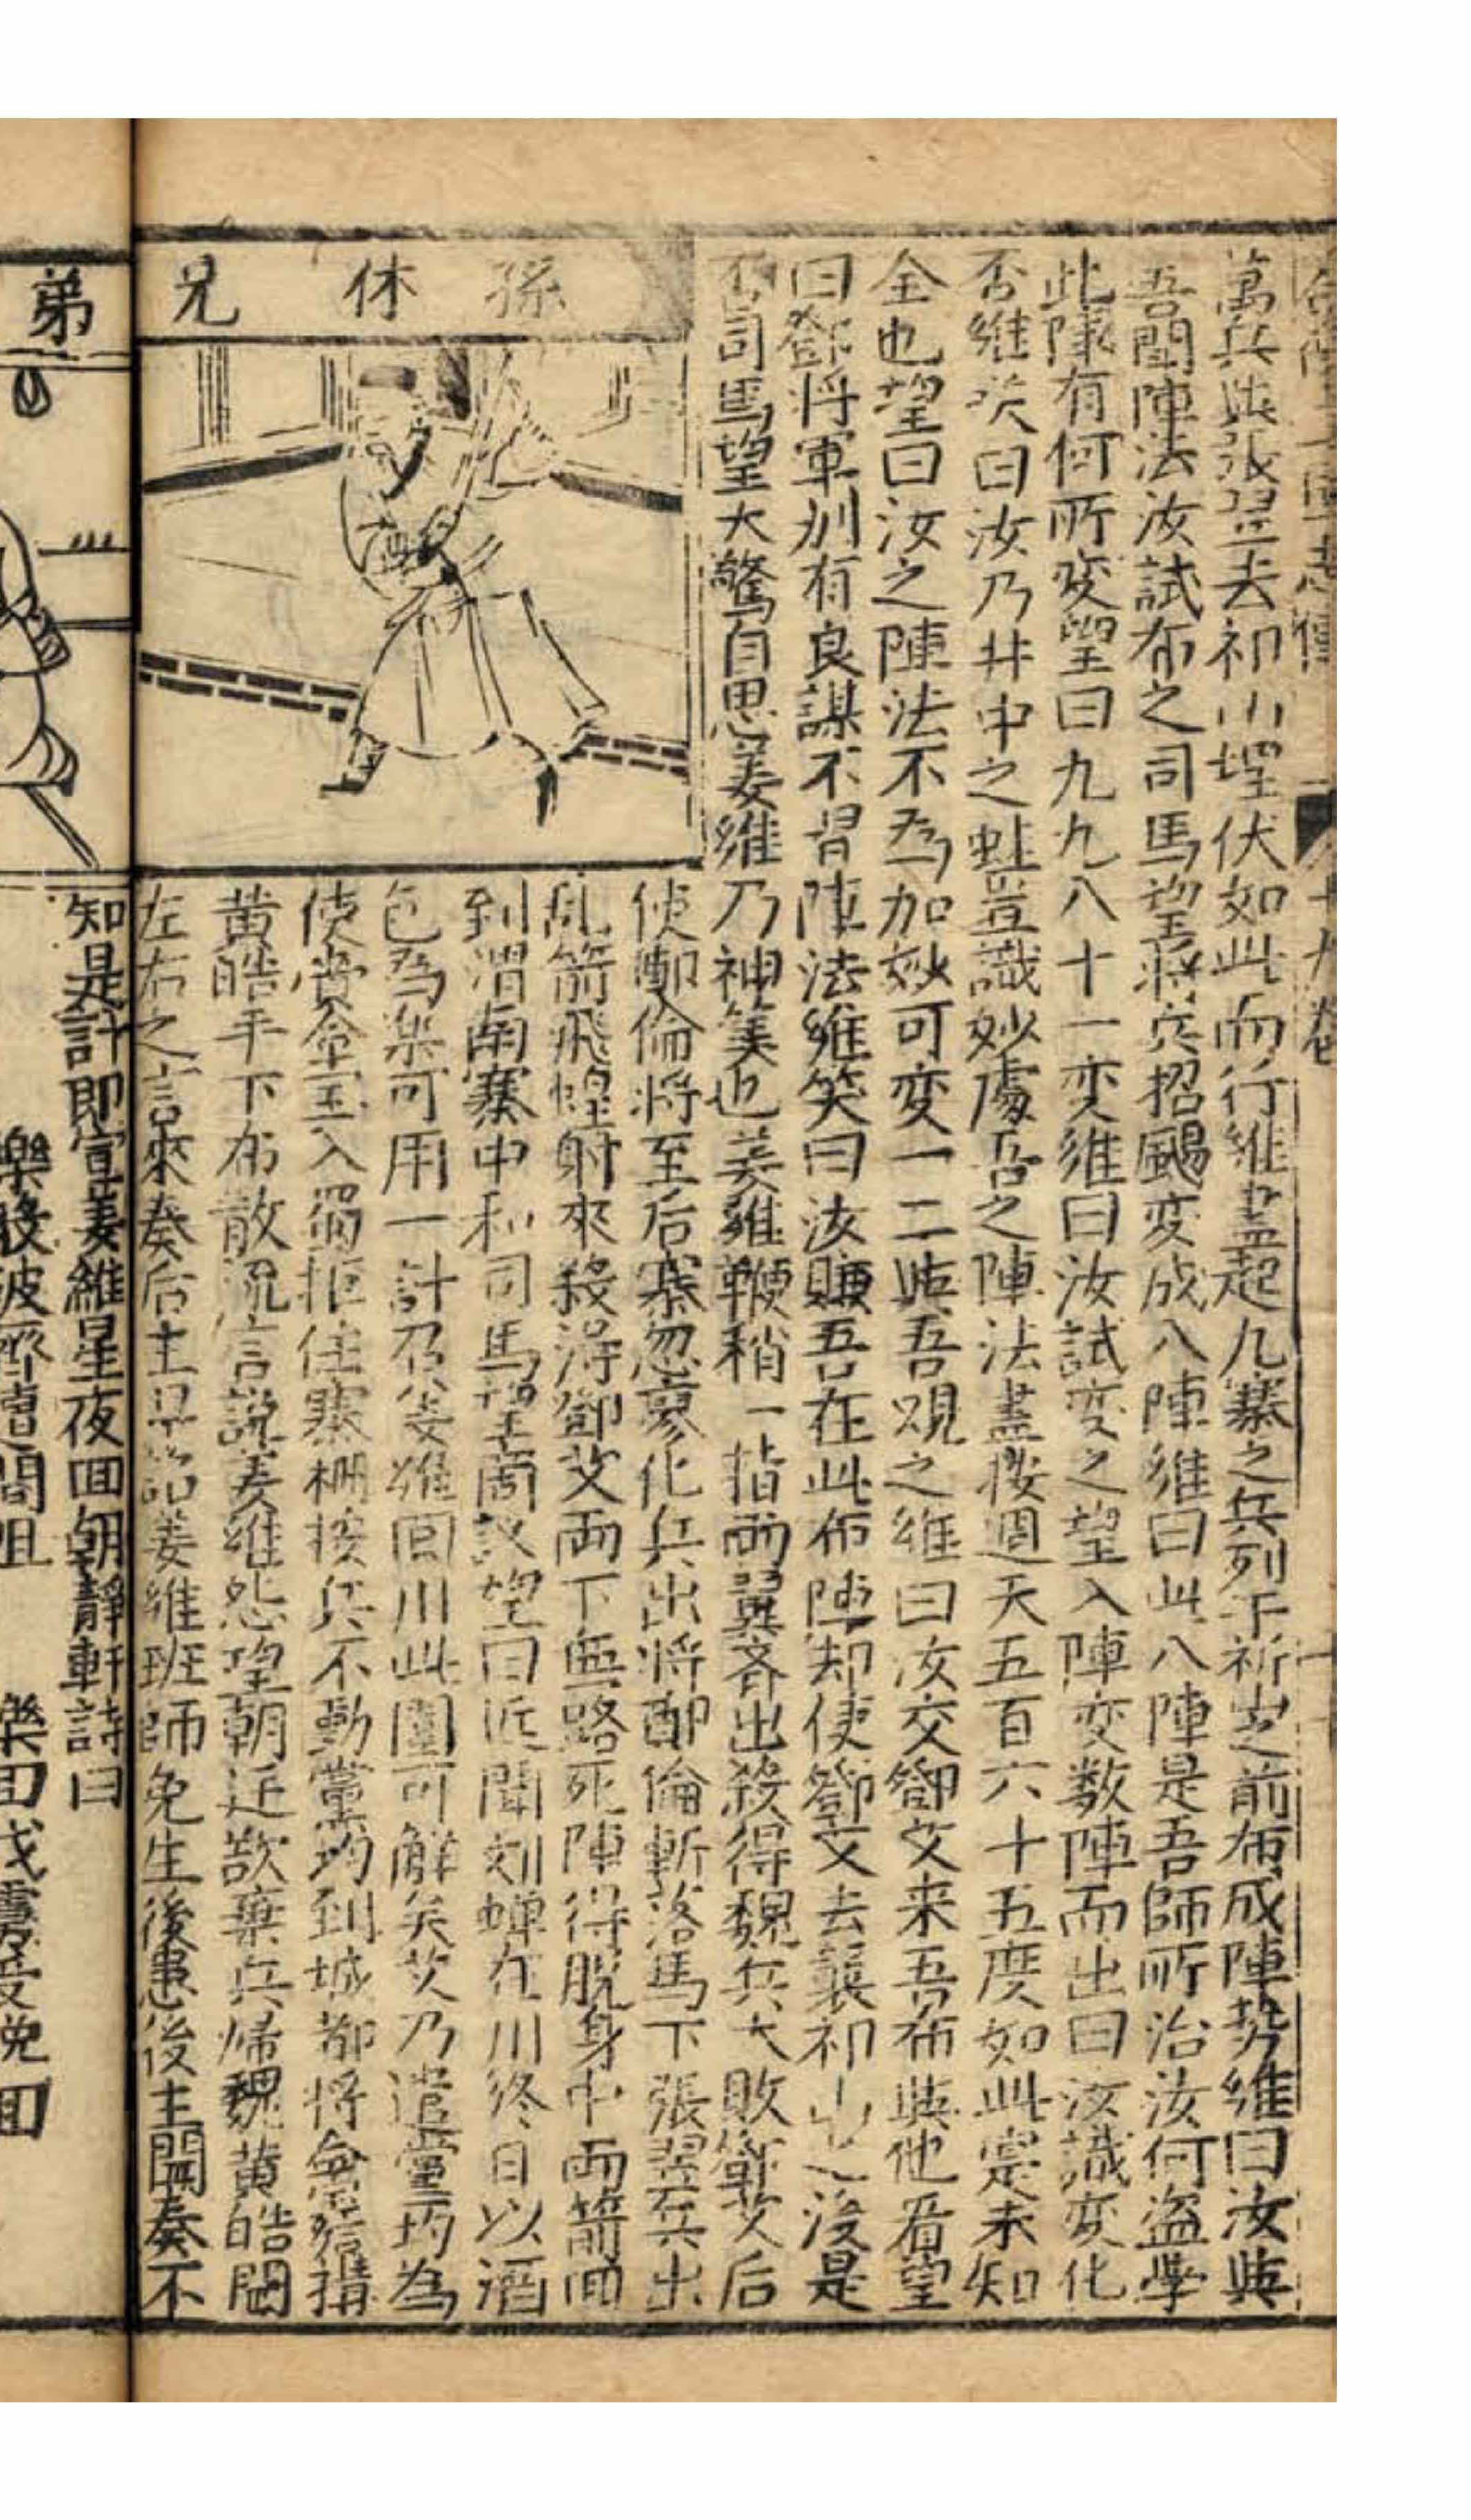 萬兵與張翌去祁山埋伏如此而行維盡起九寨之兵列于祈山之前布成陣勢維曰汝與
吾鬪陣法汝試布之司馬望將兵招颺変成八陣維曰此八陣是吾師所治汝何盗學
此陣有何所変望曰九九八十一変維曰汝試変之望入陣変数陣而出曰汝識変化
否維笑曰汝乃井中之蛙豈識妙處吾之陣法盡按週天五百六十五度如此寔未知
全也望曰汝之陣法不為加妙可変一二與吾覌之維曰汝交鄧艾来吾布與他看望
曰鄧将軍别有良謀不習陣法維笑曰汝賺吾在此布陣却使鄧艾去襲祁山之後是
否司馬望大驚自思姜維乃神筭也姜維鞭稍一指两翼齐出殺得魏兵大敗鄧艾后
使鄭倫将至后寨忽廖化兵出将鄭倫斬落馬下張翌兵出
乱箭飛蝗射來殺得鄧艾両下無路死陣得脫身中両箭回
到渭南寨中和司馬望商議望曰近聞刘蝉在川終日以酒
色為楽可用一計召姜維回川此圍可解矣艾乃遣黨均為
使賫金玉入蜀拒住寨柵按兵不動黨均到城都将金宝搆
黄皓手下布散流言說姜維怨望朝廷欲棄兵帰魏黄皓聞
左右之言來奏后主早詔姜維班師免生後患後主聞奏不
知是計即宣姜維星夜回朝靜軒詩曰
孫休兄
弟